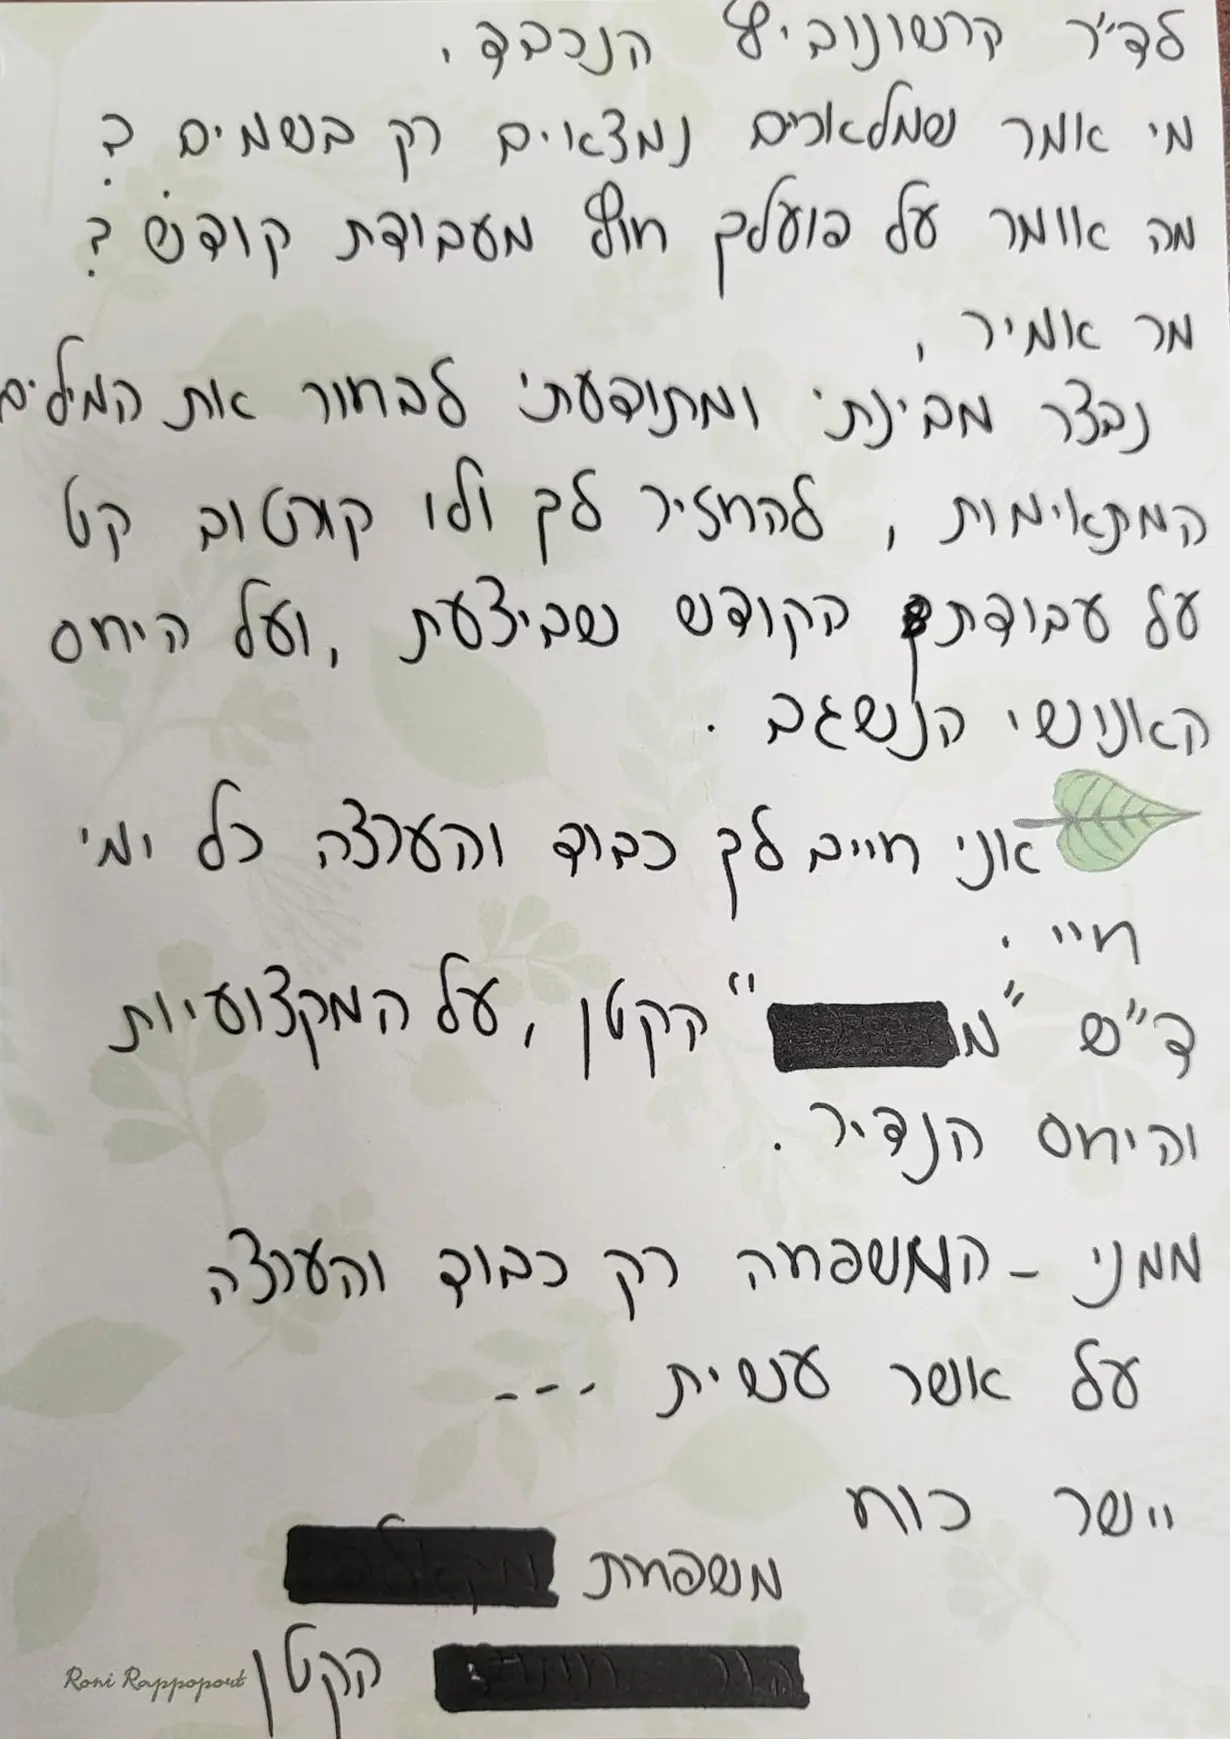 לד״ר קרשונוביץ הנכבד,
מי אמר שמלאכים נמצאים רק בשמים?
מה אומר על פועלך חוץ מעבודת קודש?
מר אמיר,
נבצר מבינתי ומתודעתי לבחור את המילים
המתאימות, להחזיר לך ולו קורטוב קט
על עבודתך הקודש שביצעת, ועל היחס
האנושי הנשגב.
אני חייב לך כבוד והערצה כל ימי
חיי.
ד״ש "מ " הקטן, על המקצועיות
והיחס הנדיר.
ממני - המשפחה רק כבוד והערצה
על אשר עשית ---
יישר כוח
משפחת
הקטן
Roni Rappoport